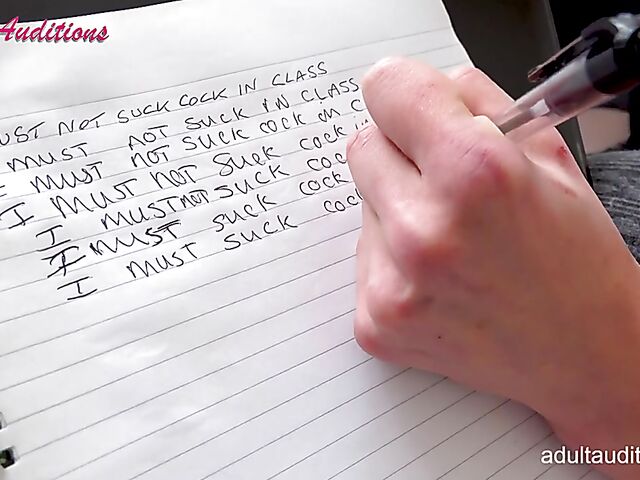 Auditions
UST NOT SUCK COCK IN CLASS
I MUST NOT SUCK IN CLASS
I MUST NOT SUCK COCK IN C
I MUST NOT SUCK COCK IN
I MUST NOT SUCK COC
I MUST SUCK COCK
I MUST SUCK COC
adultaudit